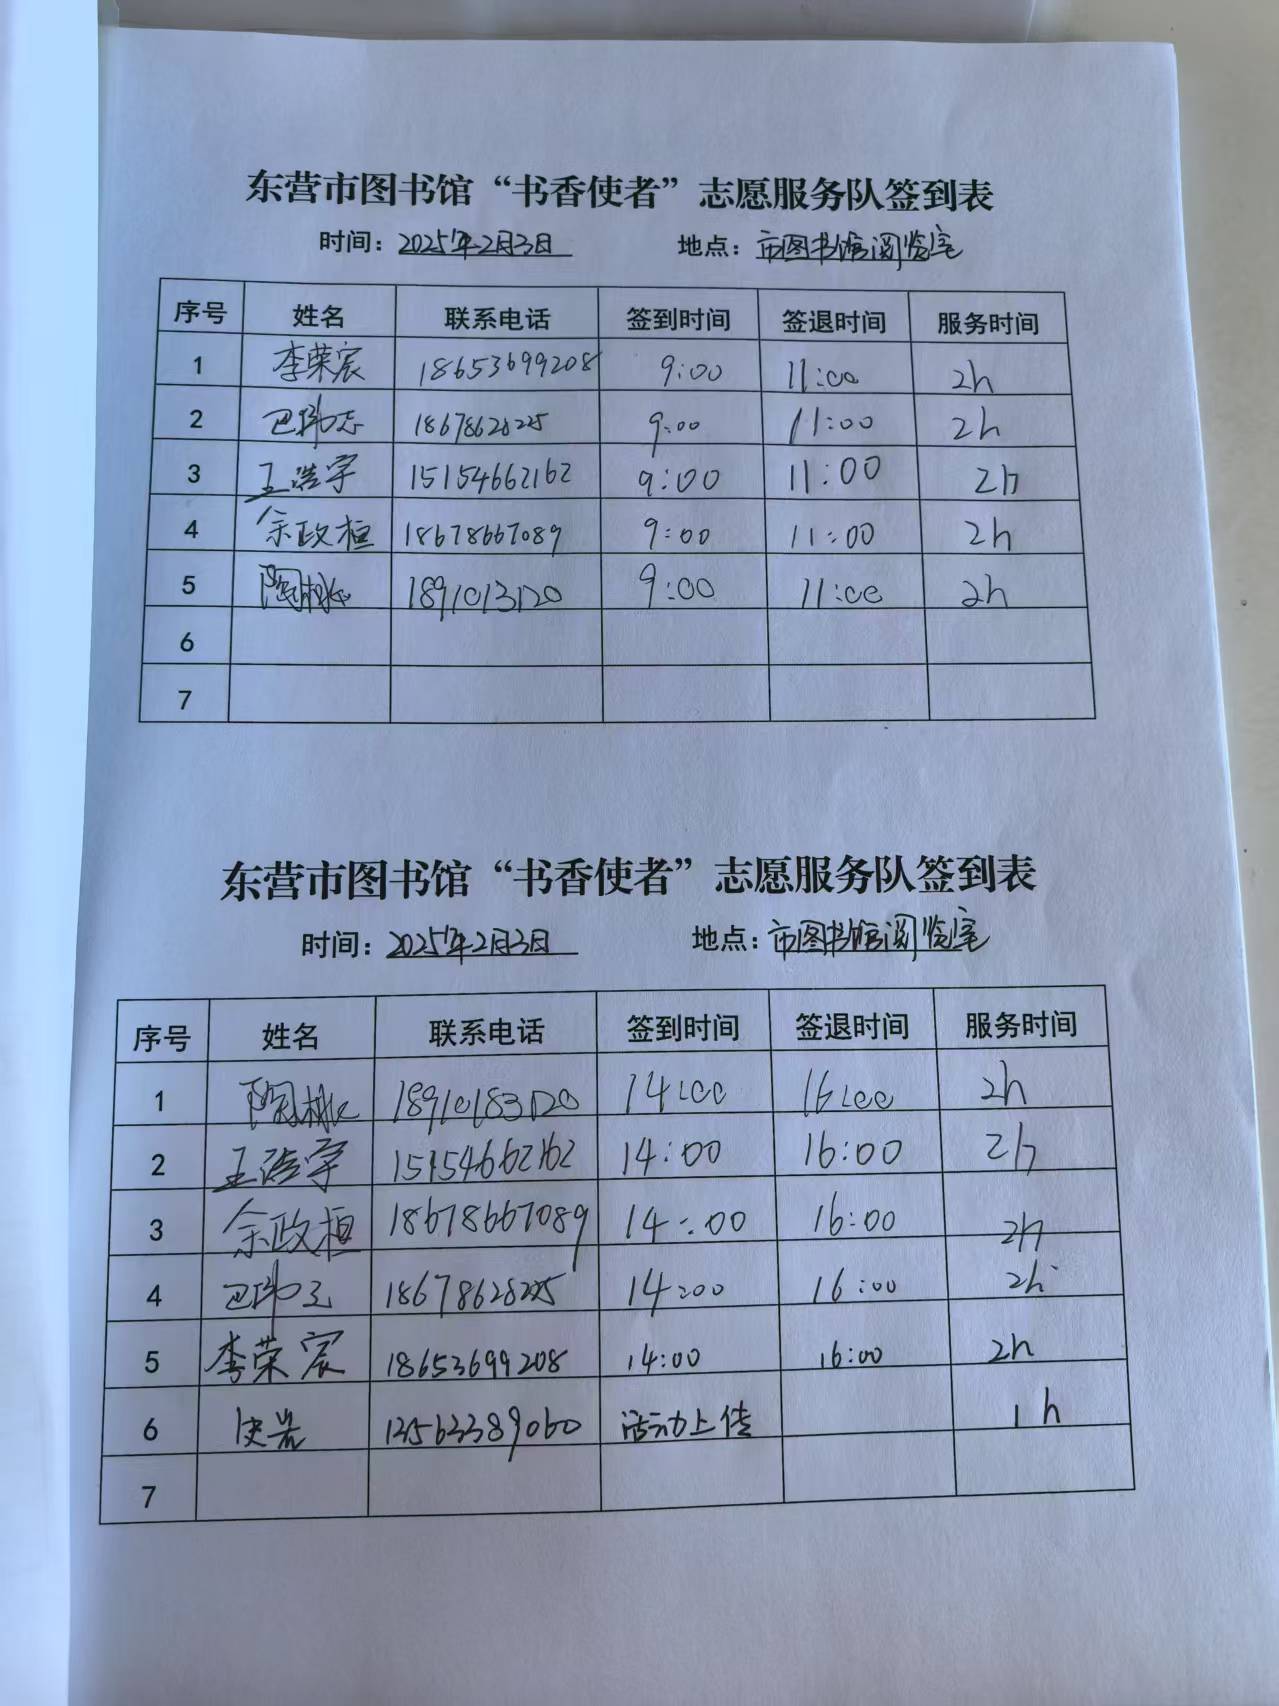 东营市图书馆“书香使者”志愿服务队签到表
时间：2025年2月3日 地点：市图书馆阅览室
序号 姓名 联系电话 签到时间 签退时间 服务时间
1 李荣宸 18653699208 9:00 11:00 2h
2 9:00 11:00 2h
3 王浩宇 15154662162 9:00 11:00 2h
4 余政桓 18678667089 9:00 11:00 2h
5 9:00 11:00 2h
6
7
东营市图书馆“书香使者”志愿服务队签到表
时间：2025年2月3日 地点：市图书馆阅览室
序号 姓名 联系电话 签到时间 签退时间 服务时间
1 14:00 16:00 2h
2 王浩宇 15154662162 14:00 16:00 2h
3 余政桓 18678667089 14:00 16:00 2h
4 14:00 16:00 2h
5 李荣宸 18653699208 14:00 16:00 2h
6 活动上传 1h
7